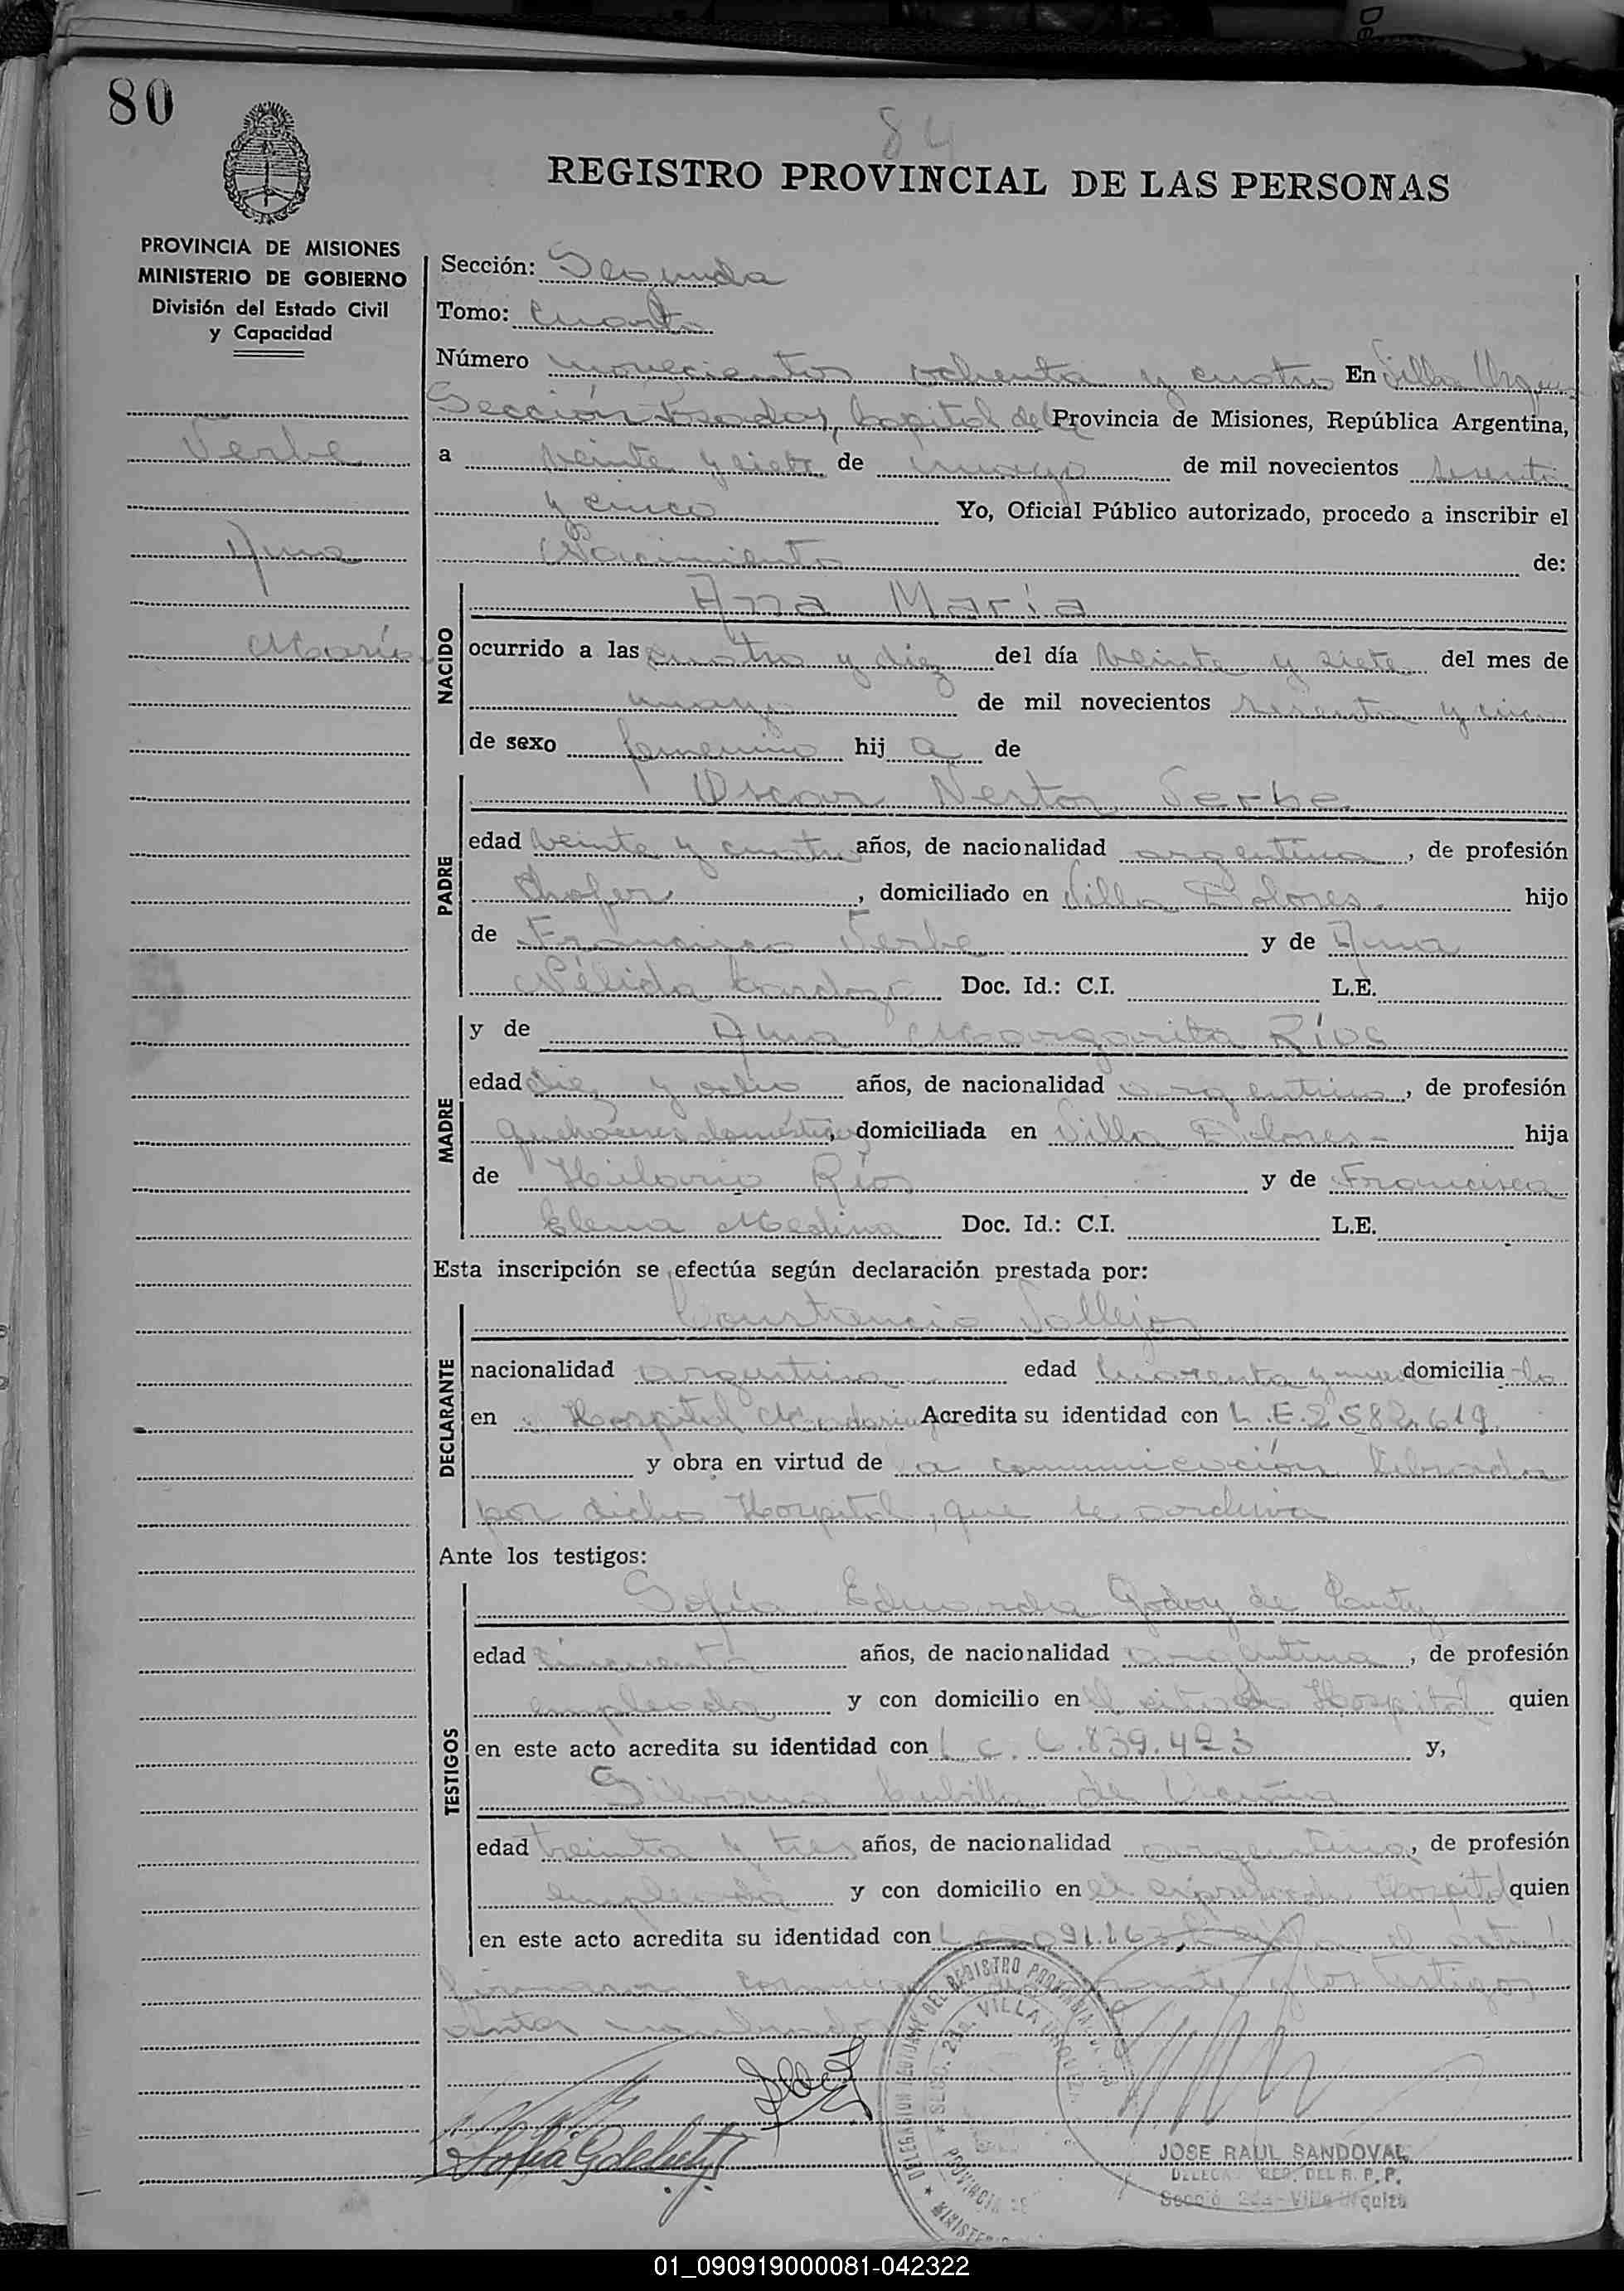 80
84
REGISTRO PROVINCIAL DE LAS PERSONAS
PROVINCIA DE MISIONES
MINISTERIO DE GOBIERNO
División del Estado Civil
y Capacidad
Sección: Segunda
Tomo: Cuarto
Número novecientos ochenta y cuatro En Villa Urquiza
Sección Posadas, Capital de la Provincia de Misiones, República Argentina,
a veinte y siete de mayo de mil novecientos sesenta
y cinco Yo, Oficial Público autorizado, procedo a inscribir el
Nacimiento de:
Ferbe
Ana
María
NACIDO
Ana María
ocurrido a las cuatro y diez del día veinte y siete del mes de
mayo de mil novecientos sesenta y cinco
de sexo femenino hij a de
PADRE
Oscar Nestor Ferbe
edad veinte y cuatro años, de nacionalidad argentina, de profesión
Chofer, domiciliado en Villa Dolores. hijo
de Francisco Ferbe y de Ana
Nélida Cardozo Doc. Id.: C.I. L.E.
MADRE
y de Ana Margarita Ríos
edad diez y ocho años, de nacionalidad argentina, de profesión
quehaceres domésticos, domiciliada en Villa Dolores- hija
de Hilario Ríos y de Francisca
Elena Medina Doc. Id.: C.I. L.E.
Esta inscripción se efectúa según declaración prestada por:
DECLARANTE
Constancio Vallejos
nacionalidad argentina edad cuarenta y nueve domicilia do
en Hospital Madariaga Acredita su identidad con L.E.2.582.619.
y obra en virtud de la comunicación librada
por dicho Hospital, que se archiva
Ante los testigos:
TESTIGOS
Sofía Eduarda Godoy de
edad cincuenta años, de nacionalidad argentina, de profesión
empleada y con domicilio en el citado Hospital quien
en este acto acredita su identidad con L.C. 6.839.423 y,
Silvana Cubilla de
edad treinta y tres años, de nacionalidad argentina, de profesión
empleada y con domicilio en el expresado Hospital quien
en este acto acredita su identidad con L
firmaron conmigo y los testigos
antes nombrados
DELEGACION REGISTRO PROVINCIAL
SECC. 2da. VILLA URQUIZA
PROVINCIA DE
MINISTERIO
JOSE RAUL SANDOVAL
DELEGADO REP. DEL R. P. P.
Secció 2da - Villa Urquiza
01_090919000081-042322